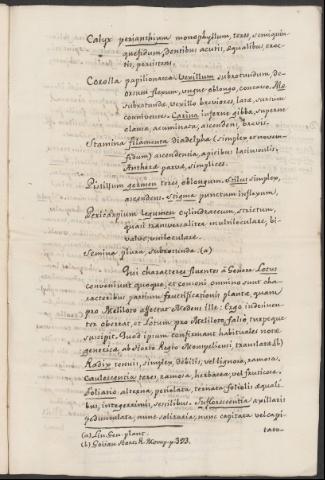 Calyx perianthium monophyllum, teres, semiquin-
quefidum, dentibus acutis, aequalibus, erec-
tis, persistens.
Corolla papilionacea. Vexillum subrotundum, de-
orsum flexum, ungue oblongo, concavo. Alae
subrotundae, vexillo breviores, latae, sursum
conniventes. Carina inferne gibba, superne
clausa, acuminata, ascendens, brevis.
Stamina filamenta Diadelpha (simplex et novem-
fidum) ascendentia, apicibus latiusculis,
Anthera parvae, simplices.
Pistillum germen teres, oblongum. Stilus simplex,
ascendens. Stigma punctum inflexum,
Pericarpium legumen cylindraceum, strictum,
quasi transversaliter multiloculare, bi-
valve, uniloculare.
Semina plura, subrotunda. (a)
Hui characteres fluentes a Genere Lotus
conveniunt quoque, et conveni omnino sunt cha-
racteribus partium fructificationis plantae, quam
pro Meliloto affectat Medens ille: Ergo inscienn-
ter oberrat, et Lotum pro Meliloto, falso, turpeque
suscipit. Quod ipsum confirmant habituales notae
genericae ab Horto Regio Monspeliensi translatae (b)
Radix tenuis, simplex, debilis, vel lignosa, ramosa.
Caulescentia teres, ramosa, herbacea, vel fruticosa.
Foliatio alterna, petiolata, ternata, foliolis aequali-
bus, integerrimis, sessilibus. Inflorescentia axillaris
pedunculata, nunc solitaria, nunc capitata vel capi-
tato-
(a) Lin. Gen. plant.
(b) Goüan Hort. R. Monsp. p. 393.